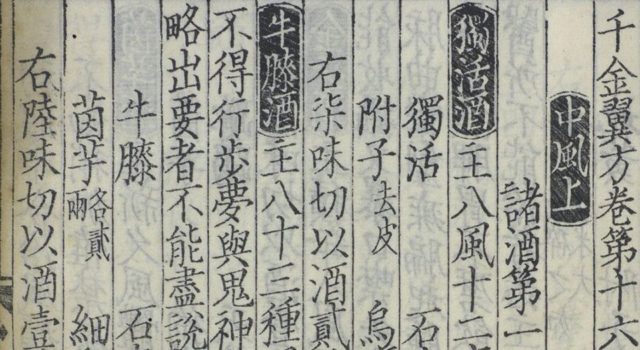 千金翼方卷第十六
中風上
諸酒第一
獨活酒 主八風十二
獨活 石
附子去皮 烏
右柒味切以酒貳
牛膝酒 主八十三種
不得行步夢與鬼神
略出要者不能盡說
牛膝 石
茵芋各貳兩 細
右陸味切以酒壹